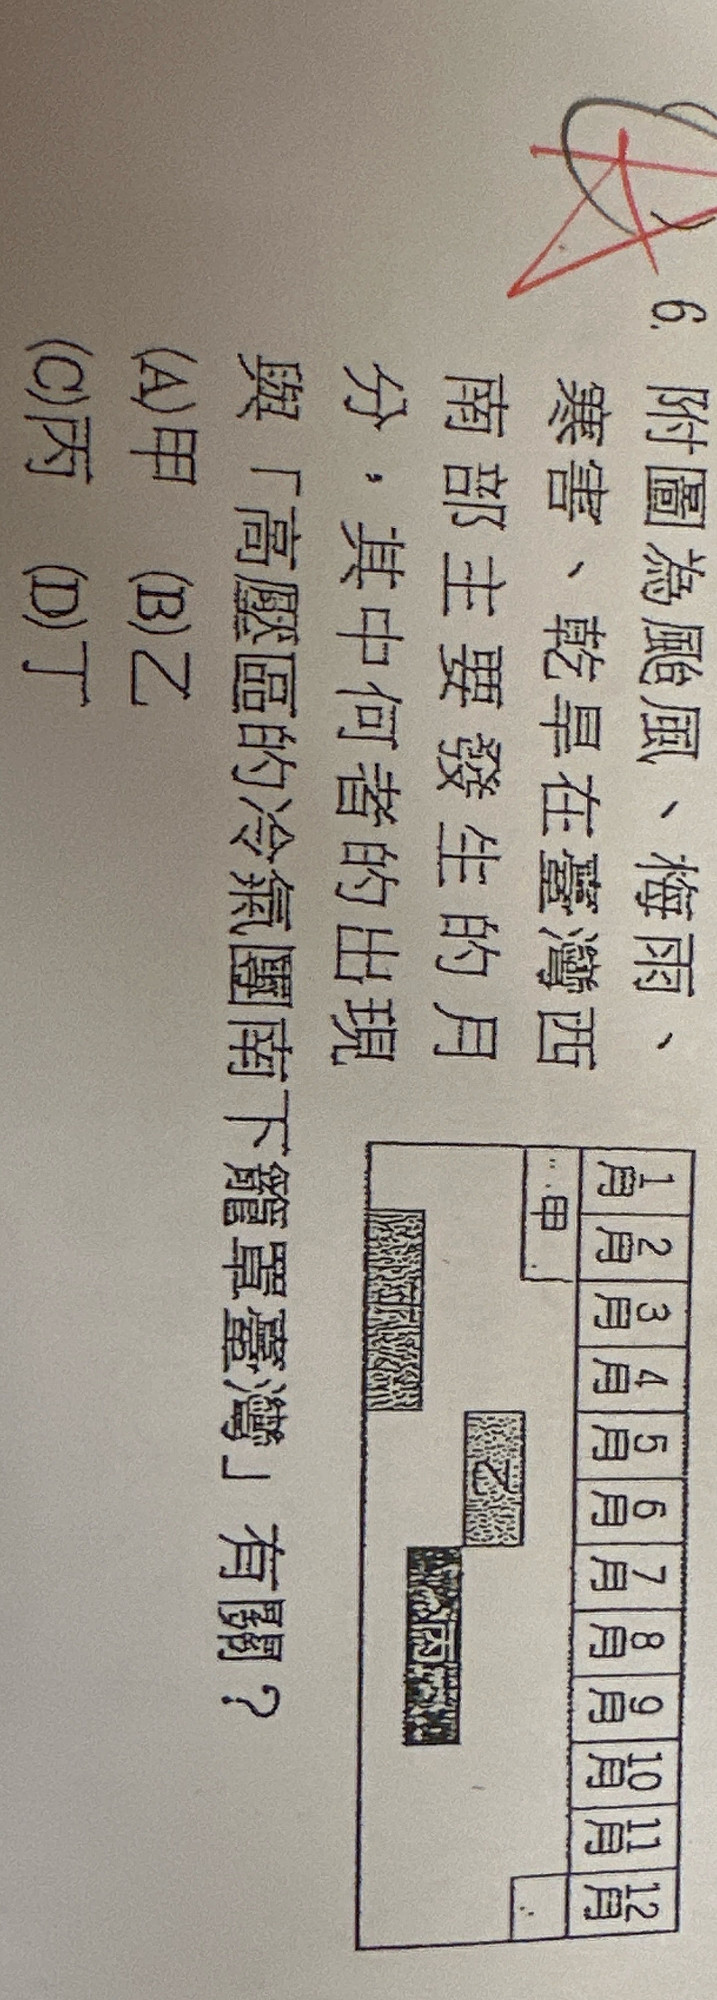 6. 附圖為颱風、梅雨、
寒害、乾旱在臺灣西
南部主要發生的月
分，其中何者的出現
與「高壓區的冷氣團南下籠罩臺灣」有關？
(A)甲 (B)乙
(C)丙 (D)丁
1月 2月 3月 4月 5月 6月 7月 8月 9月 10月 11月 12月
甲
乙
丙